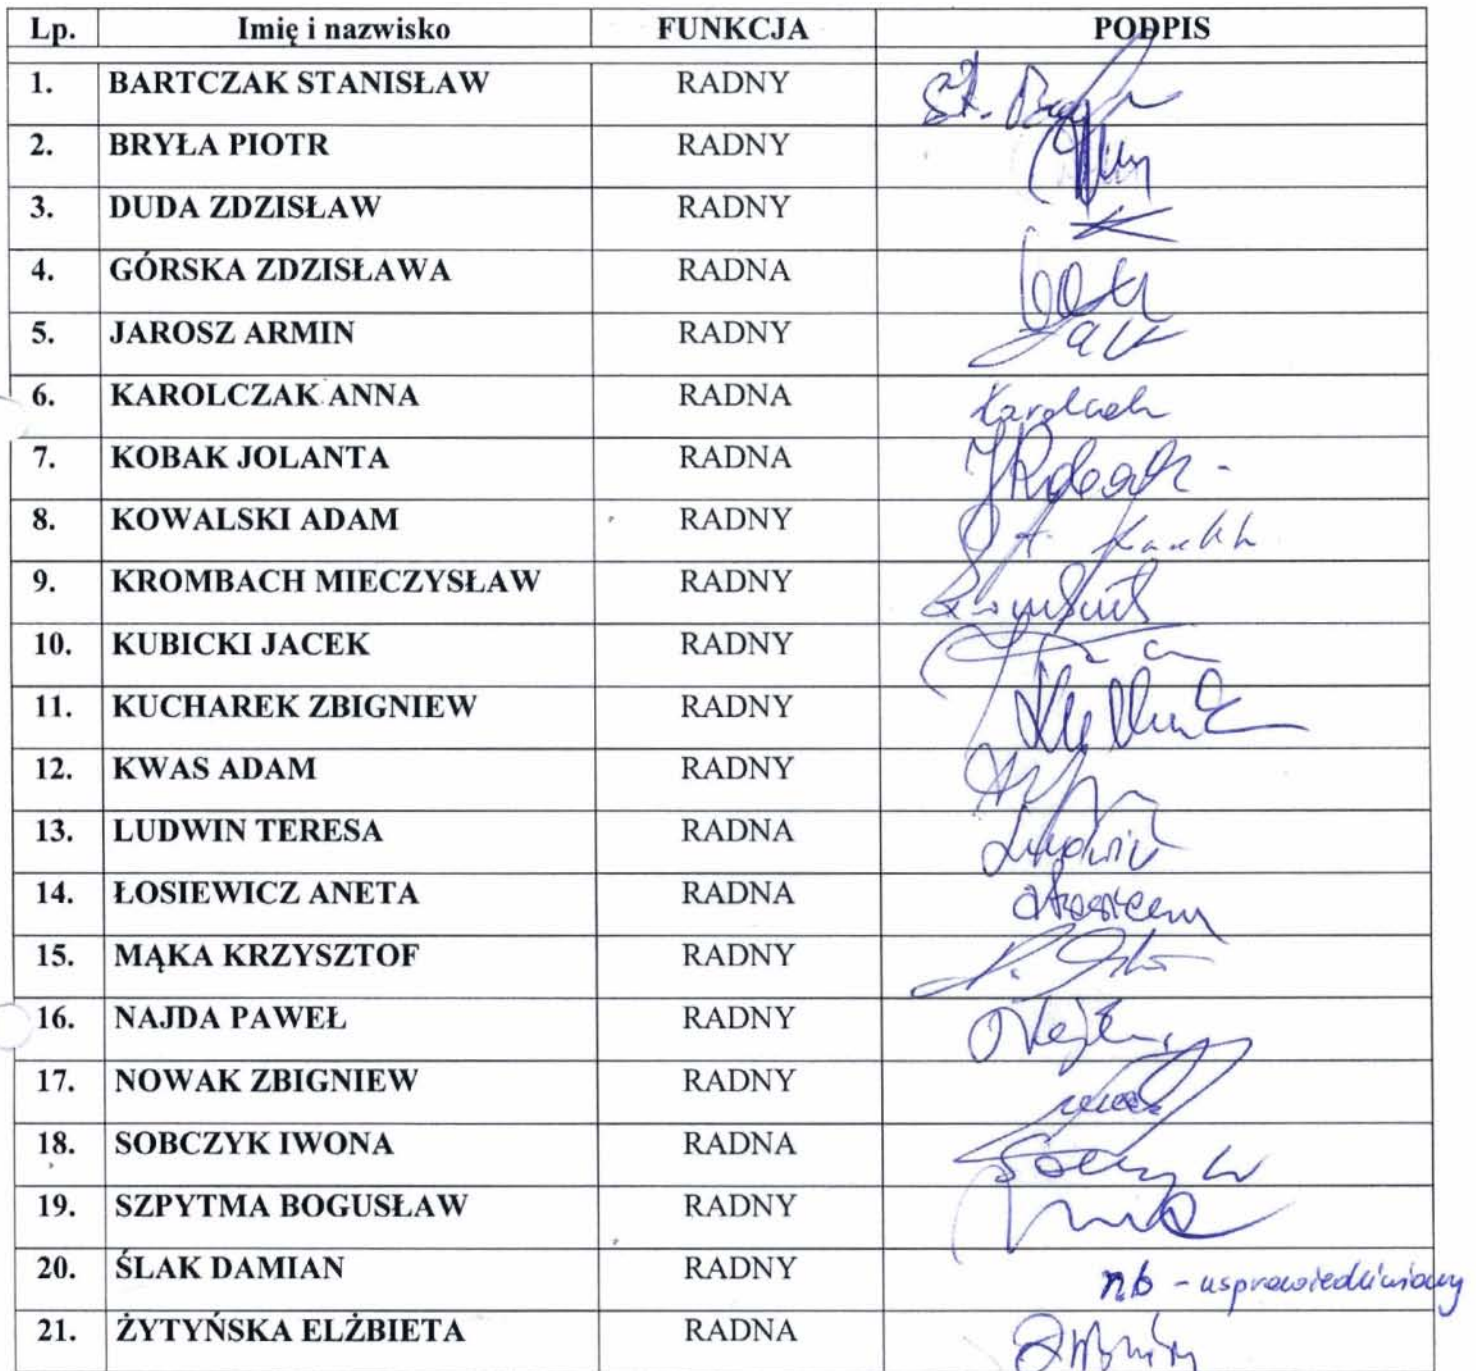 Lp. Imię i nazwisko FUNKCJA PODPIS
1. BARTCZAK STANISŁAW RADNY St.
2. BRYŁA PIOTR RADNY
3. DUDA ZDZISŁAW RADNY
4. GÓRSKA ZDZISŁAWA RADNA
5. JAROSZ ARMIN RADNY
6. KAROLCZAK ANNA RADNA
7. KOBAK JOLANTA RADNA
8. KOWALSKI ADAM RADNY
9. KROMBACH MIECZYSŁAW RADNY
10. KUBICKI JACEK RADNY
11. KUCHAREK ZBIGNIEW RADNY
12. KWAS ADAM RADNY
13. LUDWIN TERESA RADNA Ludwin
14. ŁOSIEWICZ ANETA RADNA
15. MĄKA KRZYSZTOF RADNY
16. NAJDA PAWEŁ RADNY
17. NOWAK ZBIGNIEW RADNY
18. SOBCZYK IWONA RADNA
19. SZPYTMA BOGUSŁAW RADNY
20. ŚLAK DAMIAN RADNY nb - usprawiedliwiony
21. ŻYTYŃSKA ELŻBIETA RADNA